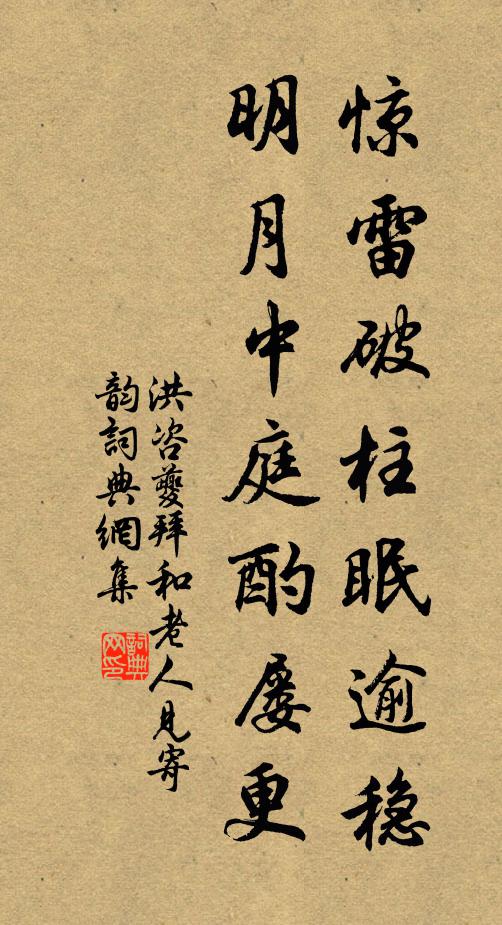 惊雷破柱眠逾稳
明月中庭酌屡更
洪咨夔拜和老人见寄
韵詞典網集
詞典网印